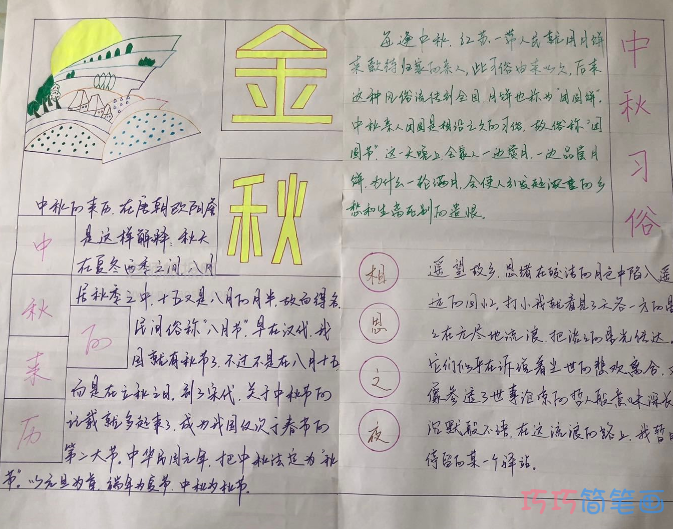 金
秋
中秋的来历
中秋的来历,在唐朝欧阳詹
是这样解释:秋天
在夏冬两季之间,八月
居秋季之中,十五又是八月的月半,故而得名
民间俗称"八月节".早在汉代,我
国就有秋节了,不过不是在八月十五
而是在立秋之日.到了宋代,关于中秋节的
记载就多起来了,成为我国仅次于春节的
第二大节.中华民国元年,把中秋法定为"秋
节".以元旦为春,端午为夏节,中秋为秋节.
中秋习俗
适逢中秋,江苏一带人民就用月饼
来款待归家的亲人,此习俗由来以久,后来
这种风俗流传到全国,月饼也称为"团圆饼".
中秋亲人团圆是相沿已久的习俗,故俗称"团
圆节".这一天晚上,全家人一边赏月,一边品尝月
饼,为什么一轮满月,会使人引发起深重的乡
愁和生离死别的遗恨.
相思之夜
遥望故乡,思绪在皎洁的月色中陷入遥
远的回忆,打小我就看见了天各一方的星
它们似乎在诉说着尘世的悲欢离合,
像参透了世事沧凉的哲人般意味深长
沉默般不语.在这流浪的路上,我暂
待留的某一个驿站.
巧巧简笔画